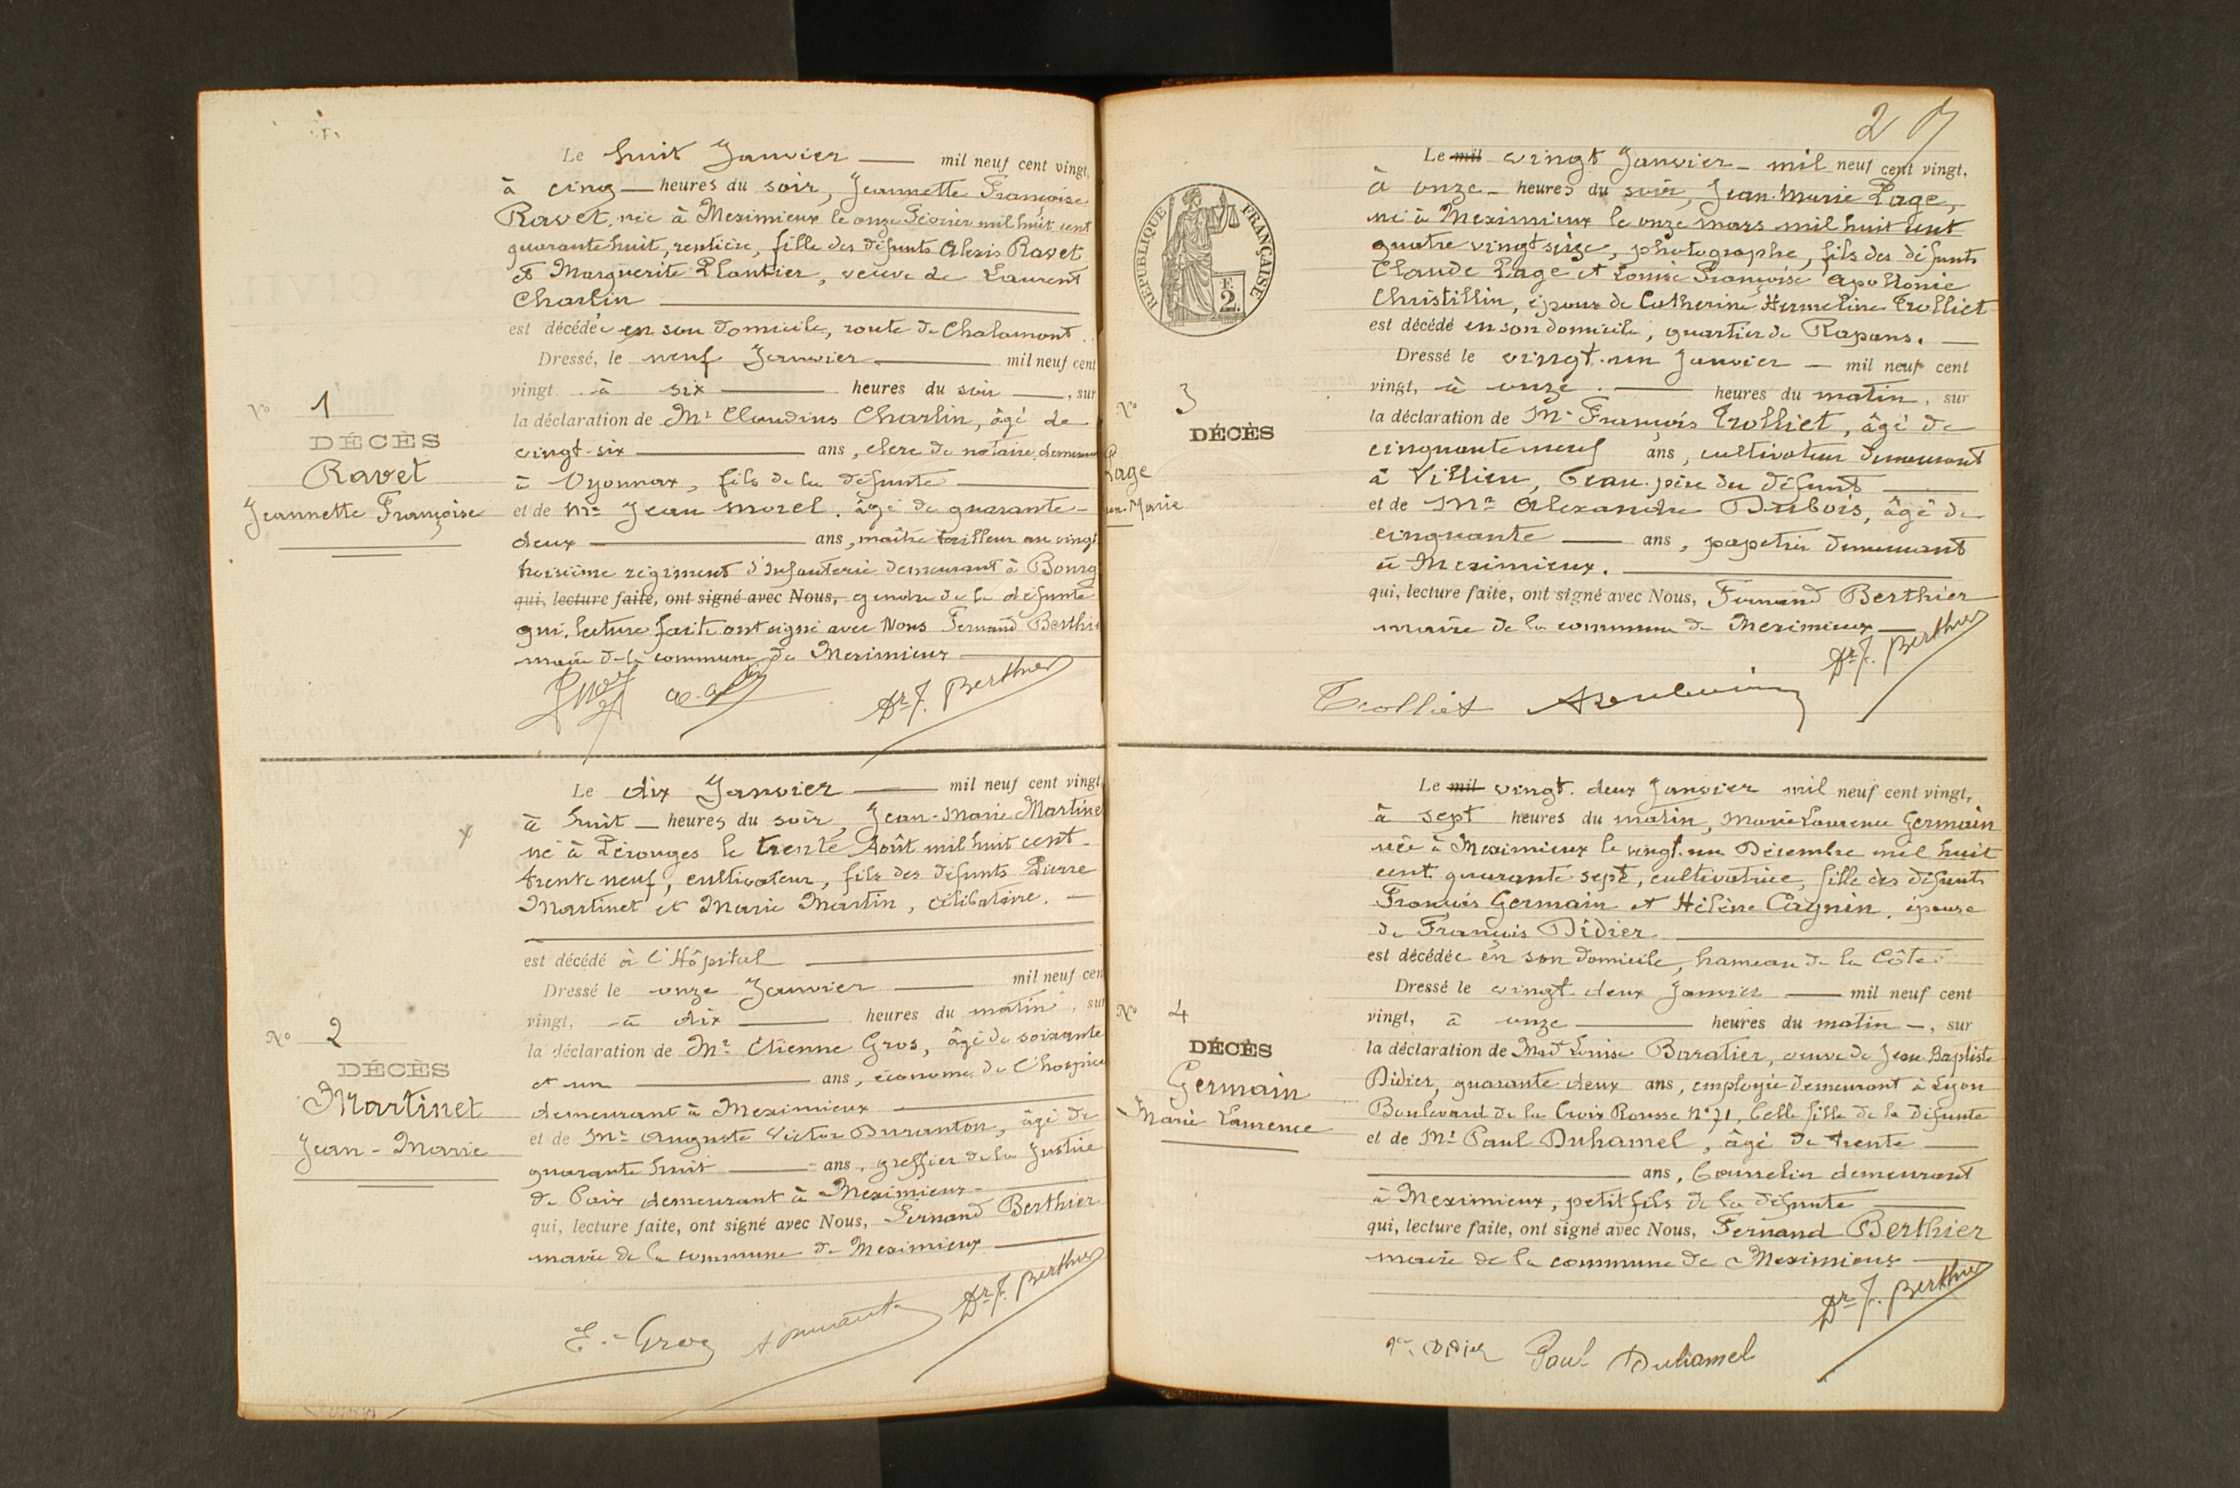 Le huit Janvier — mil neuf cent vingt,
à cinq — heures du soir, Jeannette Françoise
Ravet, née à Meximieux le onze Février mil huit cent
quarante huit, rentière, fille des défunts Alexis Ravet
et Marguerite Plantier, veuve de Laurent
Charlin
est décédée en son domicile, route de Chalamont.
Dressé, le neuf Janvier — mil neuf cent
vingt à six — heures du soir —, sur
la déclaration de Mr Claudius Charlin, âgé de
vingt-six — ans, clerc de notaire, demeurant
à Oyonnax, fils de la défunte
et de Mr Jean Morel, âgé de quarante-
deux — ans, maître tailleur au vingt
troisième régiment d'Infanterie demeurant à Bourg
qui, lecture faite, ont signé avec Nous, gendre de la défunte
qui, lecture faite ont signé avec Nous Fernand Berthi
maire de la commune de Meximieux
Dr F. Berthier
No 1
DÉCÈS
Ravet
Jeannette Françoise
Le dix Janvier — mil neuf cent vingt
à huit — heures du soir, Jean-Marie Martine
né à Pérouges le trente Août mil huit cent-
trente neuf, cultivateur, fils des défunts Pierre
Martinet et Marie Martin, célibataire. —
est décédé à l'Hôpital
Dressé le onze Janvier — mil neuf cen
vingt, à dix — heures du matin, sur
la déclaration de Mr Etienne Gros, âgé de soixante
et un — ans, économe de l'hospice
demeurant à Meximieux
et de Mr Auguste Victor Duranton, âgé de
quarante huit — ans, greffier de la Justice
de Paix demeurant à Meximieux
qui, lecture faite, ont signé avec Nous, Fernand Berthier
maire de la commune de Meximieux
Dr F. Berthier
E. Gros
No 2
DÉCÈS
Martinet
Jean-Marie
2
RÉPUBLIQUE FRANÇAISE
F.
2.
Le mil vingt Janvier — mil neuf cent vingt,
à onze — heures du soir, Jean-Marie Page,
né à Meximieux le onze mars mil huit cent
quatre vingt seize, photographe, fils des défunts
Claude Page et Louise Françoise Apollonie
Christillin, époux de Catherine Hermeline Trolliet
est décédé en son domicile, quartier de Rapans. —
Dressé le vingt-un Janvier — mil neuf cent
vingt, à onze — heures du matin, sur
la déclaration de Mr François Trolliet, âgé de
cinquante neuf ans, cultivateur demeurant
à Villieu, beau-père du défunt
et de Mr Alexandre Dubois, âgé de
cinquante — ans, papetier demeurant
à Meximieux.
qui, lecture faite, ont signé avec Nous, Fernand Berthier
maire de la commune de Meximieux
Dr F. Berthier
Trolliet
No 3
DÉCÈS
Page
Marie
Le mil vingt-deux Janvier mil neuf cent vingt,
à sept heures du matin, Marie Laurence Germain
née à Meximieux le vingt-un Décembre mil huit
cent quarante sept, cultivatrice, fille des défunts
François Germain et Hélène Cagnin, épouse
de François Didier
est décédée en son domicile, hameau de la Côte.
Dressé le vingt-deux Janvier — mil neuf cent
vingt, à onze — heures du matin —, sur
la déclaration de Made Louise Baratier, veuve de Jean Baptiste
Didier, quarante deux ans, employée demeurant à Lyon
Boulevard de la Croix Rousse No 71, belle fille de la défunte
et de Mr Paul Duhamel, âgé de trente
— ans, bourrelier demeurant
à Meximieux, petit fils de la défunte
qui, lecture faite, ont signé avec Nous, Fernand Berthier
maire de la commune de Meximieux
Dr F. Berthier
Didier Paul Duhamel
No 4
DÉCÈS
Germain
Marie Laurence